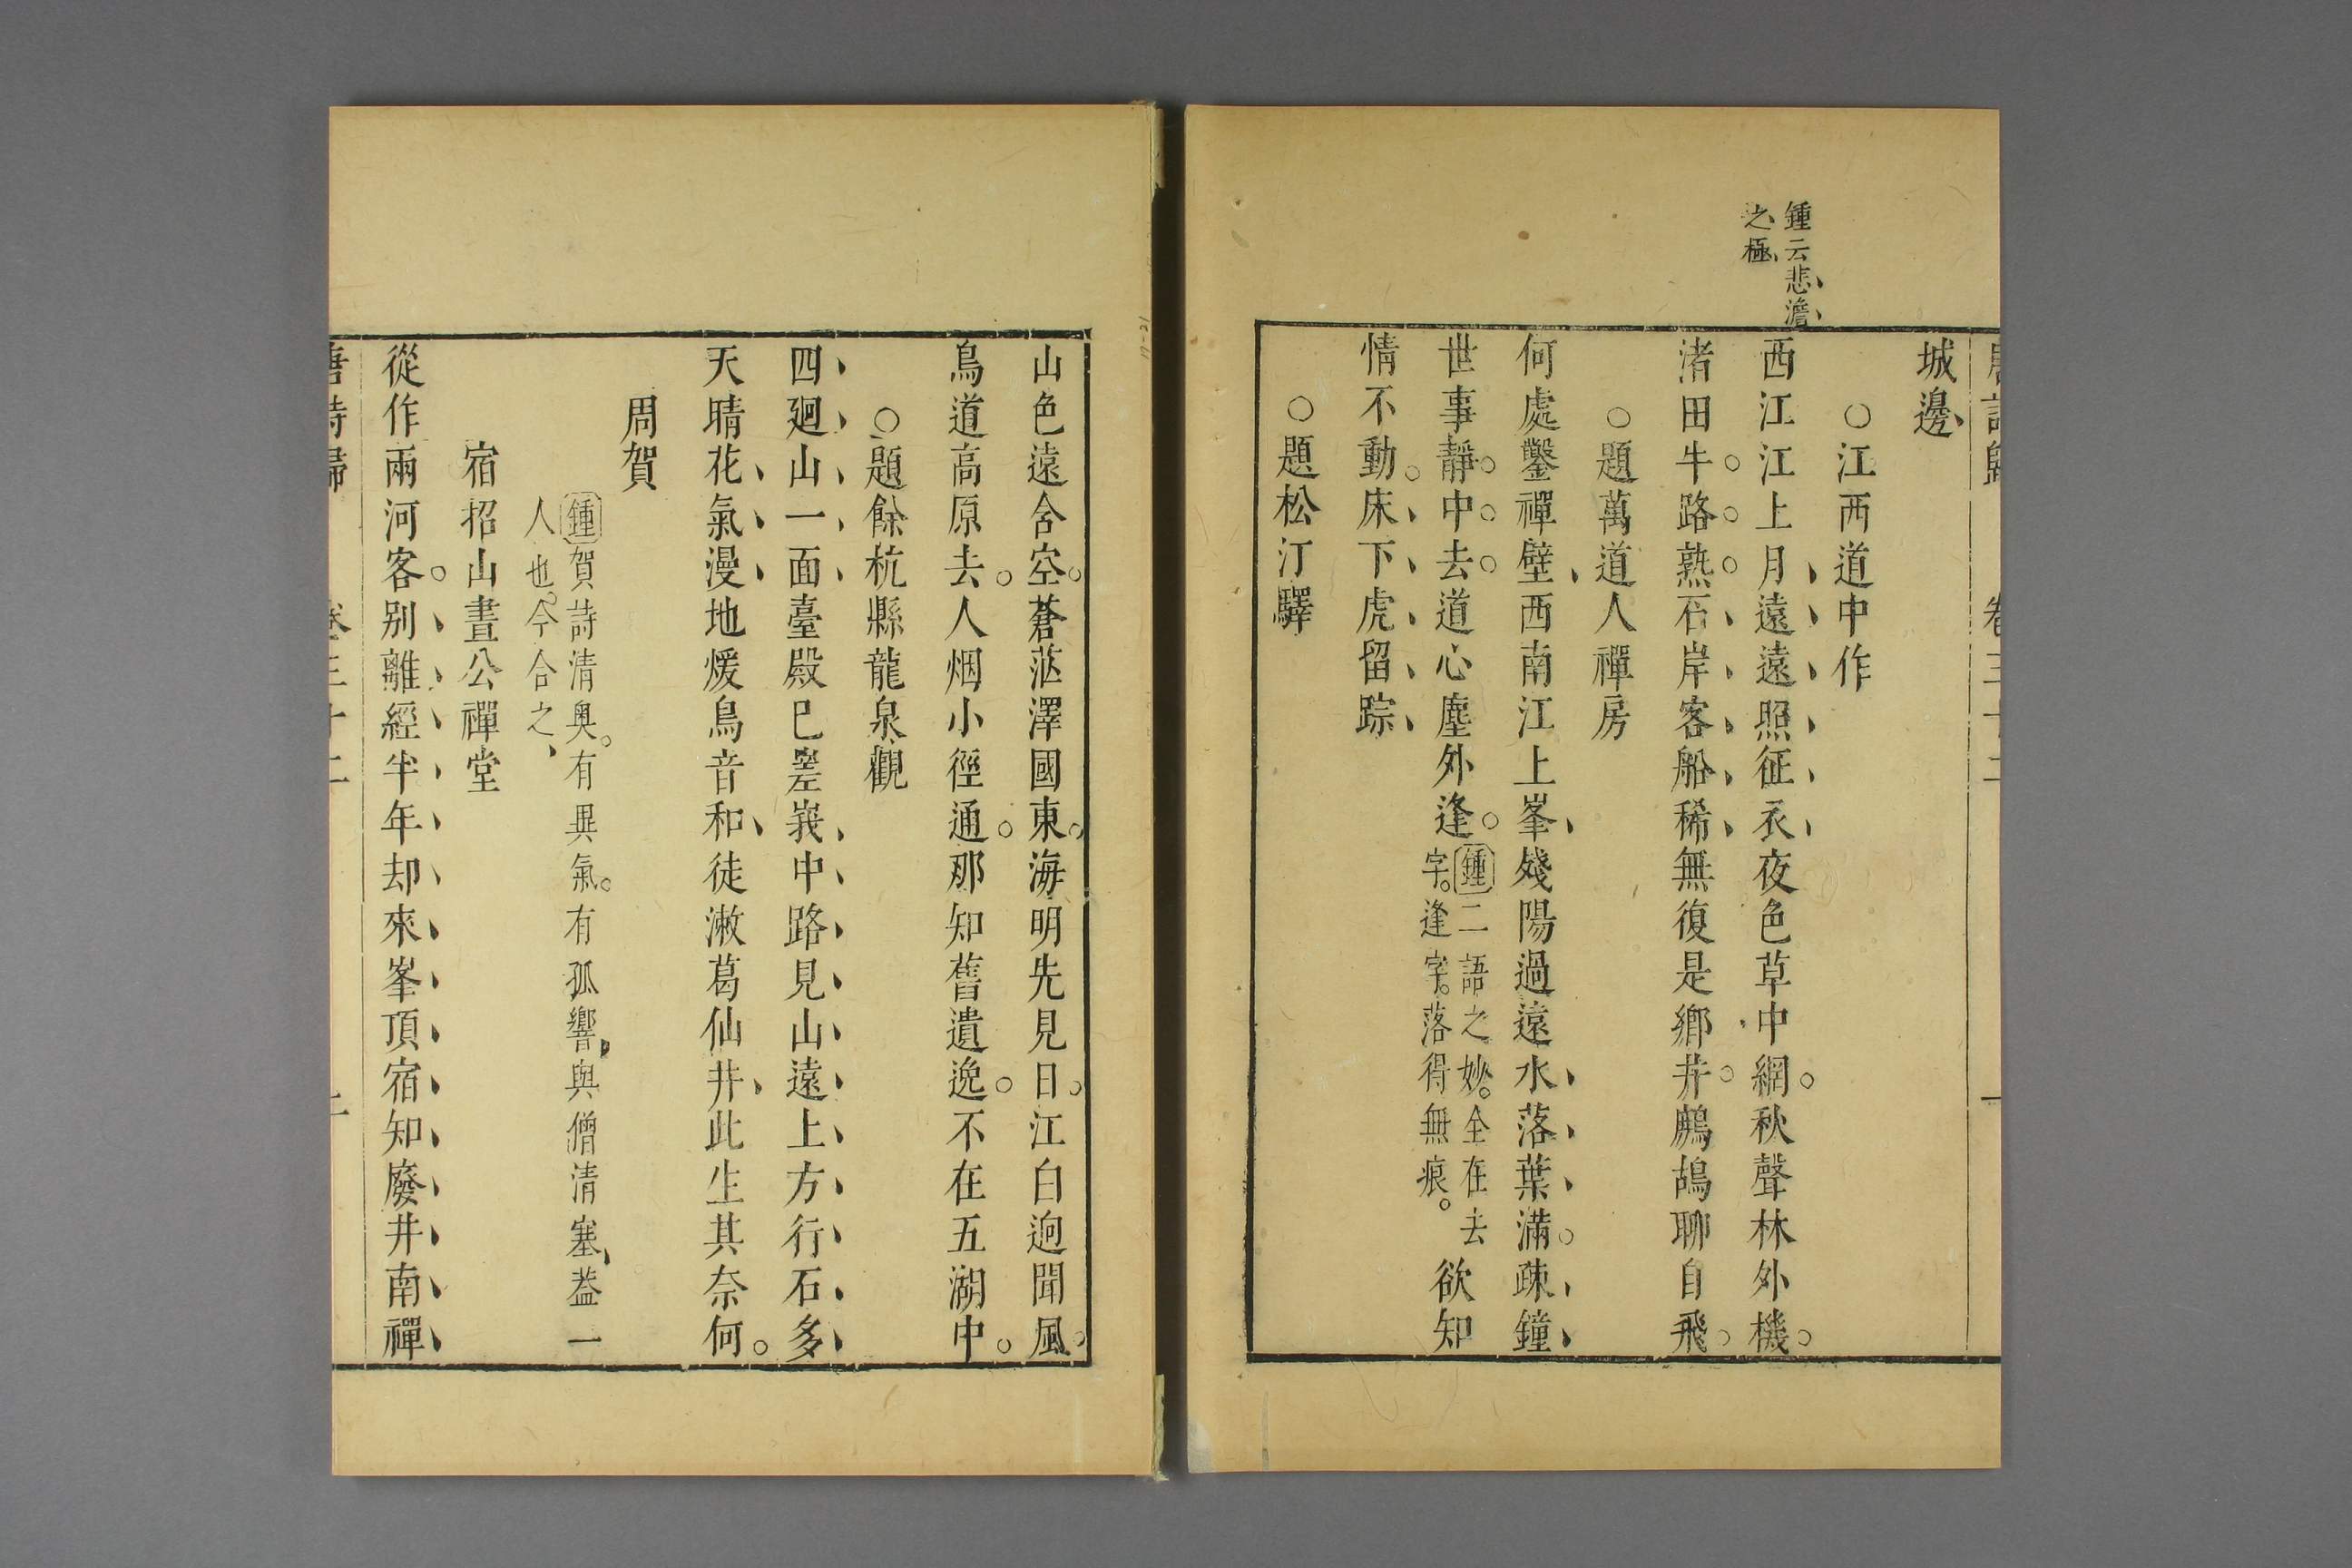 唐詩歸　卷三十二　一
城邊
○江西道中作
西江江上月遠遠照征衣夜色草中網秋聲林外機
鍾云悲澹
之極
渚田牛路熟石岸客船稀無復是鄉井鷓鴣聊自飛
○題萬道人禪房
何處鑿禪壁西南江上峯殘陽過遠水落葉滿疎鐘
世事靜中去道心塵外逢鍾二語之妙全在去
字逢字落得無痕
欲知
情不動床下虎留踪
○題松汀驛
山色遠含空蒼茫澤國東海明先見日江白迥聞風
鳥道高原去人烟小徑通那知舊遺逸不在五湖中
○題餘杭縣龍泉觀
四廻山一面臺殿已嵳峩中路見山遠上方行石多
天晴花氣漫地煖鳥音和徒漱葛仙井此生其奈何
周賀
鍾賀詩清奥有異氣有孤響與僧清塞葢一
人也今合之
宿招山晝公禪堂
從作兩河客别離經半年却來峯頂宿知廢井南禪
唐詩歸　卷三十二　二